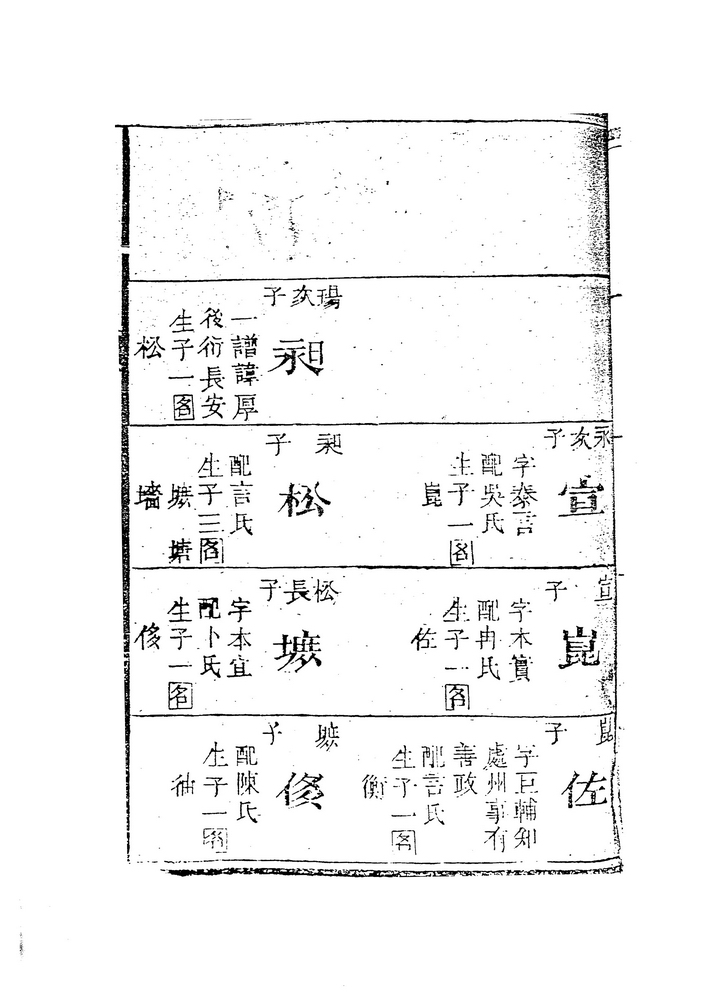 瑒次子
昶
一譜諱厚
後衍長安
生子一名
松
永次子
宣
字泰言
配吳氏
生子一名
崑
昶子
松
配言氏
生子三名
壙 塘
墻
宣子
崑
字本實
配冉氏
生子一名
佐
松長子
壙
字本宜
配卜氏
生子一名
修
崑子
佐
字巨輔知
處州事有
善政
配言氏
生子一名
衡
壙子
修
配陳氏
生子一名